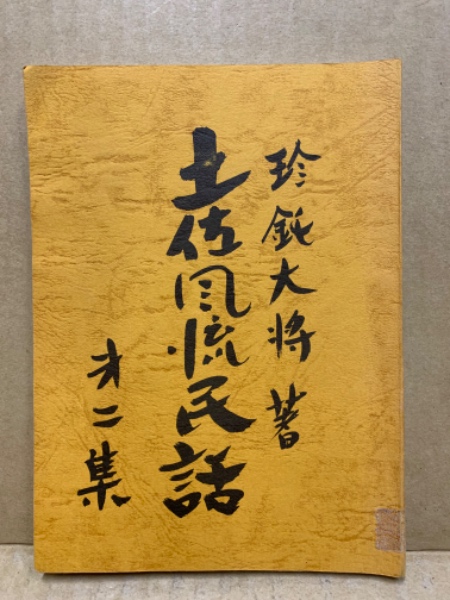 珍鈍大将 著
土佐风流民話
才二集